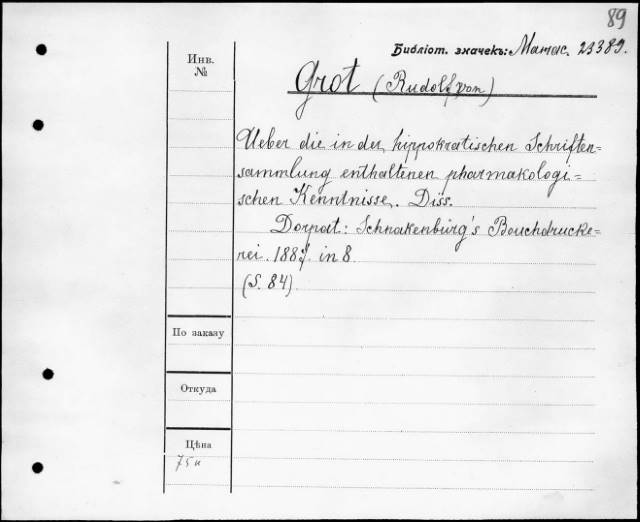 89
Библіот. значекъ: Матас. 23389.
Инв.
№
Grot (Rudolf von)
Ueber die in der hippokratischen Schriften=
sammlung enthaltenen pharmakologi=
schen Kenntnisse. Diss.
Dorpat: Schnakenburg's Bouchdrucke=
rei. 1887. in 8
(S. 84).
По заказу
Откуда
Цѣна
75 к